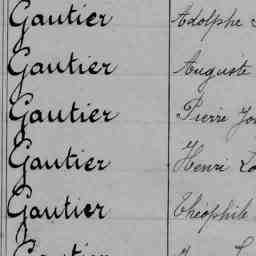 Gautier Adolphe
Gautier Auguste
Gautier Pierre
Gautier Henri
Gautier Théophile
Gautier